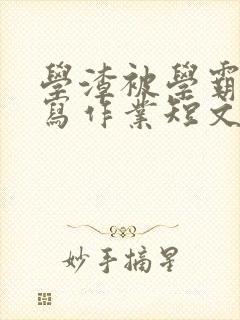 學渣被學霸
寫作業短文
妙手摘星